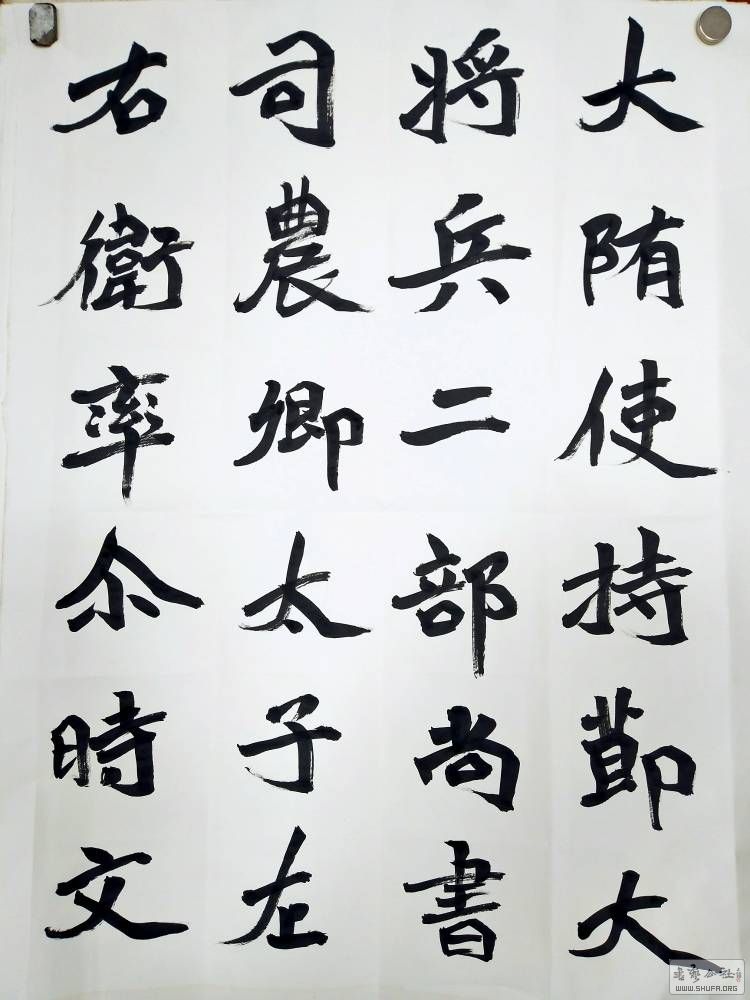 大陏使持莭大
將兵二部尚書
司農卿太子左
右衛率尒時文
書藝公社
WWW.SHUFA.ORG